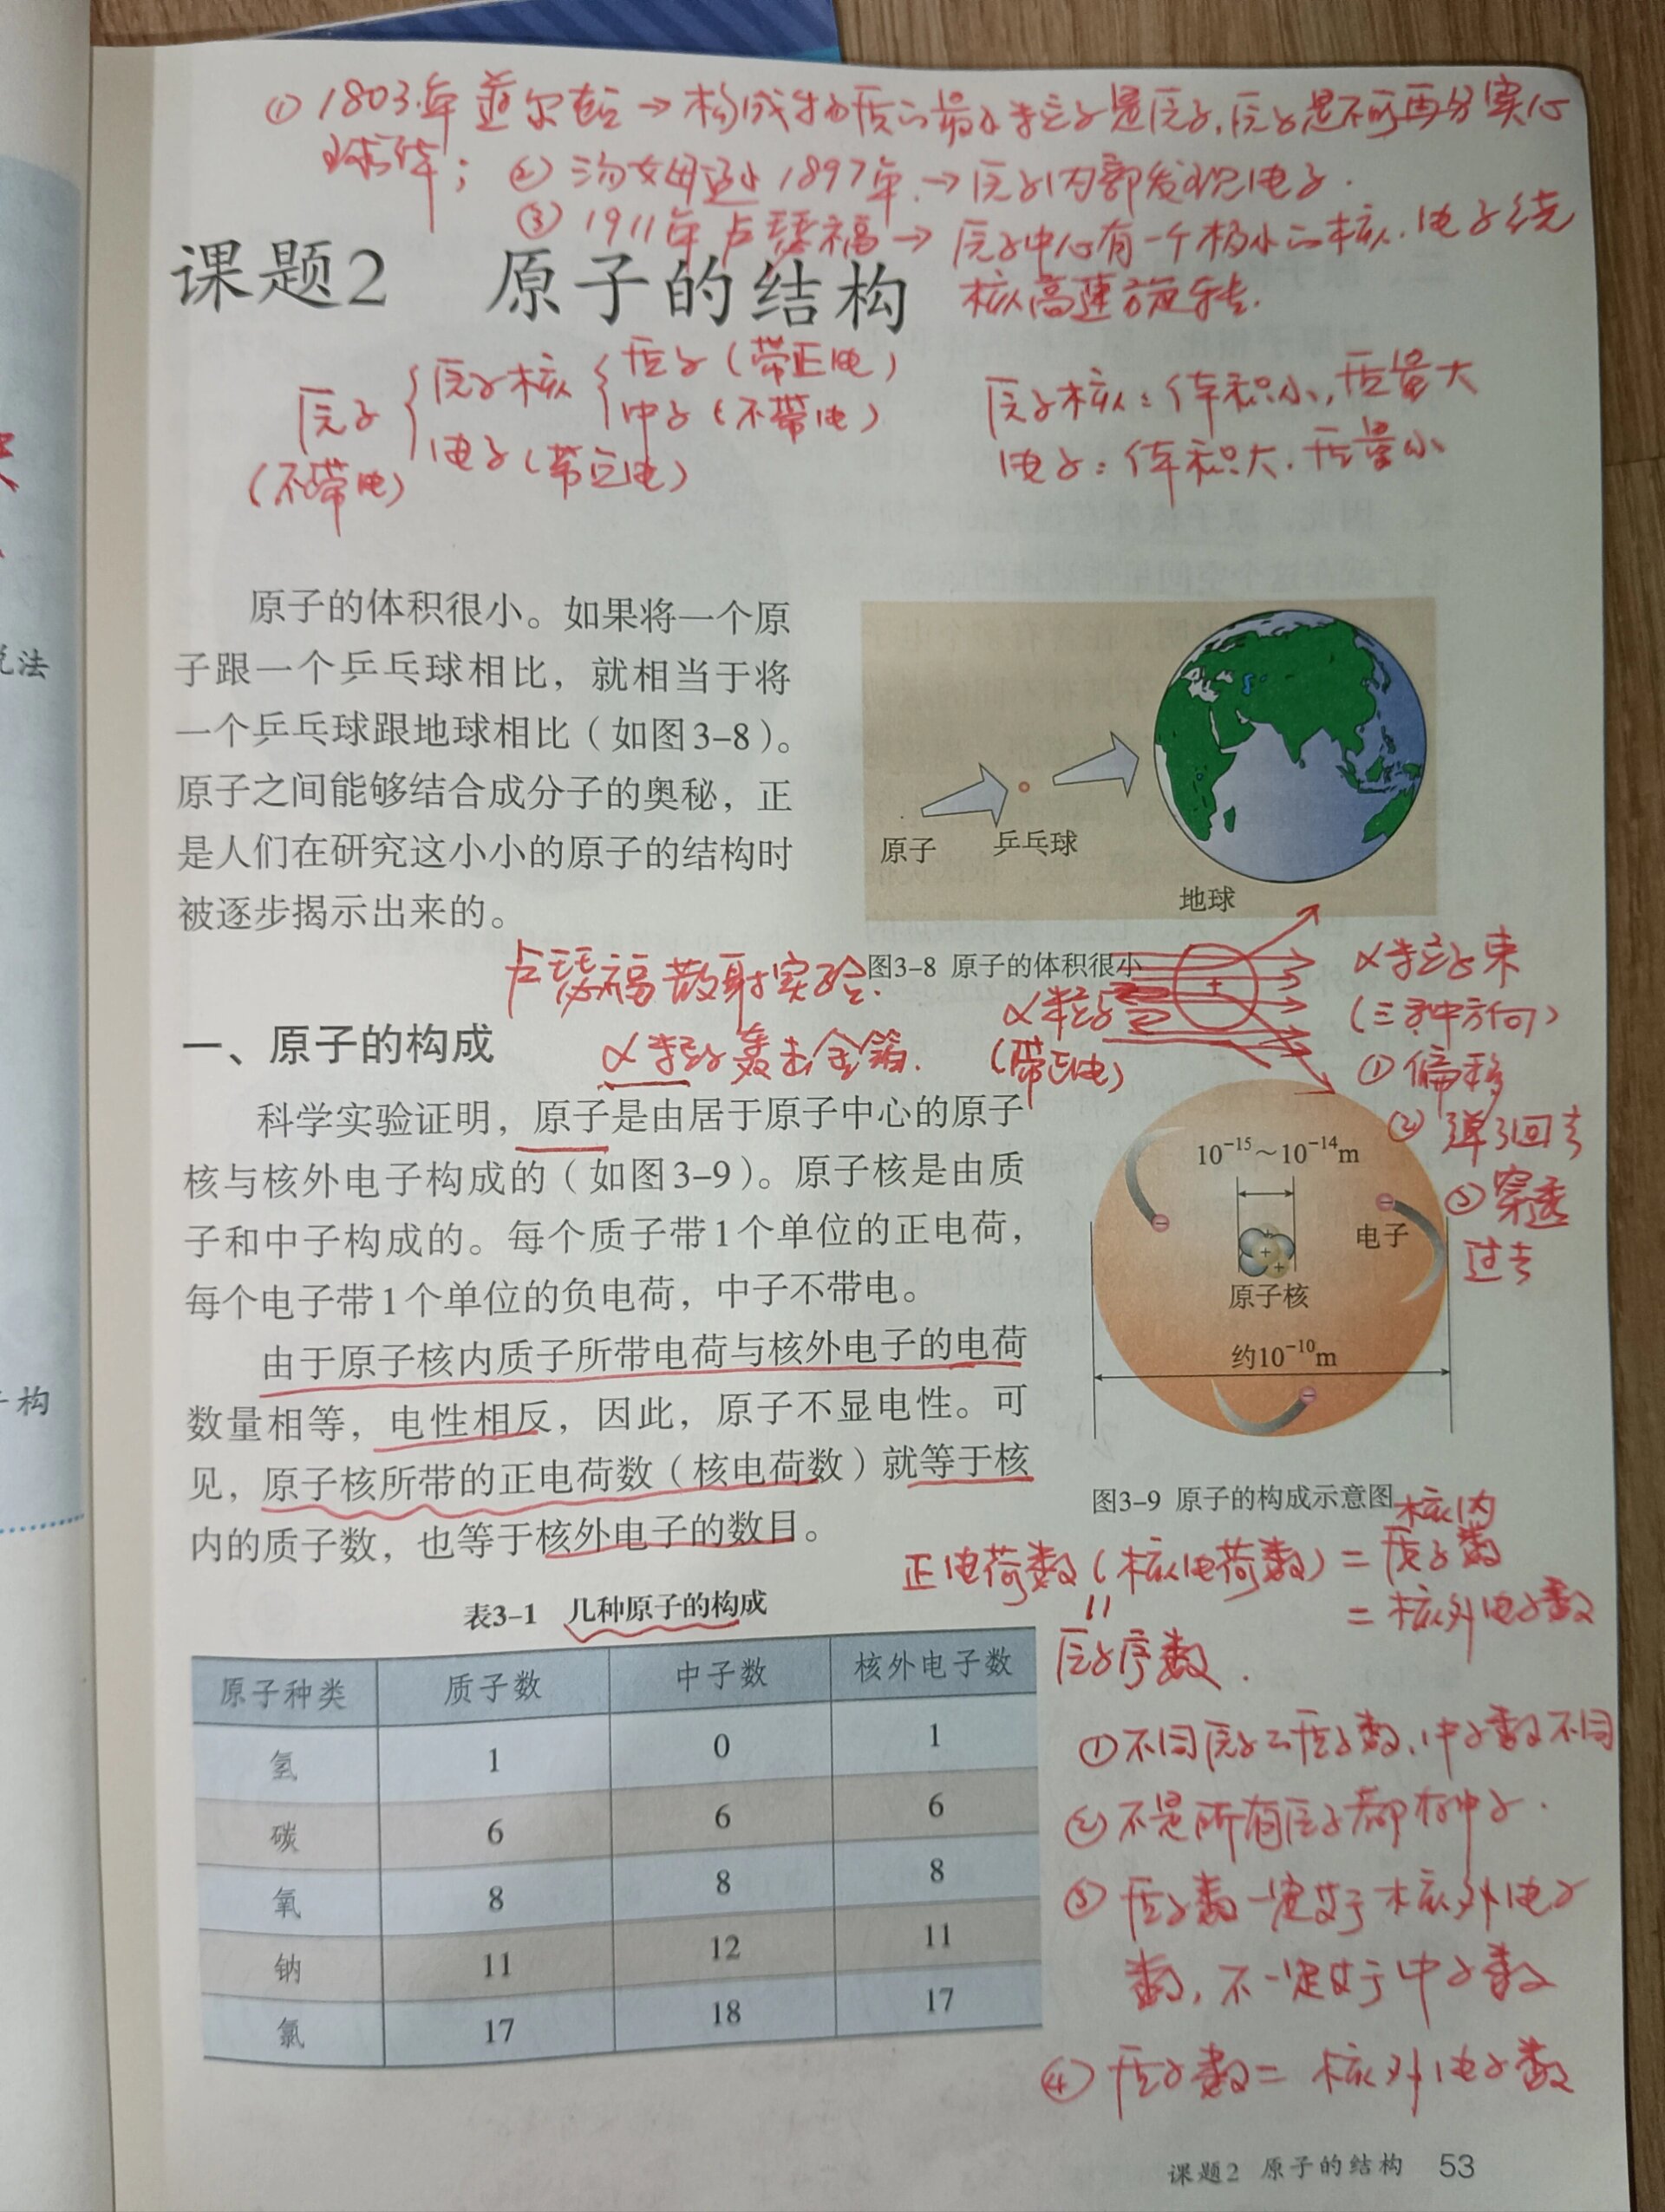 ①1803年 道尔顿→构成物质的最小粒子是原子,原子是不可再分实心
球体; ②汤姆逊1897年.→原子内部发现电子.
③1911年卢瑟福→原子中心有一个极小的核.电子绕
核高速旋转.
课题2 原子的结构
原子 原子核 质子(带正电)
中子(不带电)
电子(带负电)
(不带电)
原子核:体积小,质量大
电子:体积大.质量小
原子的体积很小。如果将一个原
子跟一个乒乓球相比，就相当于将
一个乒乓球跟地球相比（如图3-8）。
原子之间能够结合成分子的奥秘，正
是人们在研究这小小的原子的结构时
被逐步揭示出来的。
原子
乒乓球
地球
图3-8 原子的体积很小
卢瑟福散射实验.
α粒子轰击金箔.
α粒子
(带正电)
+
α粒子束
(三种方向)
①偏移
②弹了回去
③穿透
过去
说法
构
一、原子的构成
科学实验证明，原子是由居于原子中心的原子
核与核外电子构成的（如图3-9）。原子核是由质
子和中子构成的。每个质子带1个单位的正电荷，
每个电子带1个单位的负电荷，中子不带电。
由于原子核内质子所带电荷与核外电子的电荷
数量相等，电性相反，因此，原子不显电性。可
见，原子核所带的正电荷数（核电荷数）就等于核
内的质子数，也等于核外电子的数目。
10⁻¹⁵～10⁻¹⁴m
电子
原子核
约10⁻¹⁰m
图3-9 原子的构成示意图
核内
正电荷数(核电荷数)=质子数
=核外电子数
=
原子序数.
表3-1 几种原子的构成
原子种类 质子数 中子数 核外电子数
氢 1 0 1
碳 6 6 6
氧 8 8 8
钠 11 12 11
氯 17 18 17
①不同原子的质子数、中子数不同
②不是所有原子都有中子.
③质子数一定等于核外电子
数,不一定等于中子数
④质子数=核外电子数
课题2 原子的结构 53